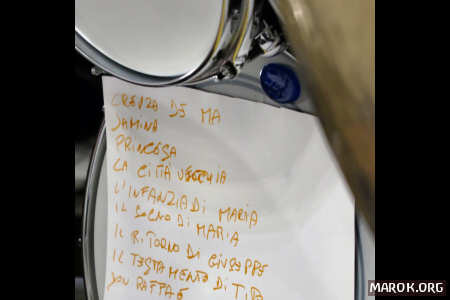 CREUZA DE MA
JAMINA
PRINCESA
LA CITTÀ VECCHIA
L'INFANZIA DI MARIA
IL SOGNO DI MARIA
IL RITORNO DI GIUSEPPE
IL TESTAMENTO DI TITO
DON RAFFAE'
MAROK.ORG